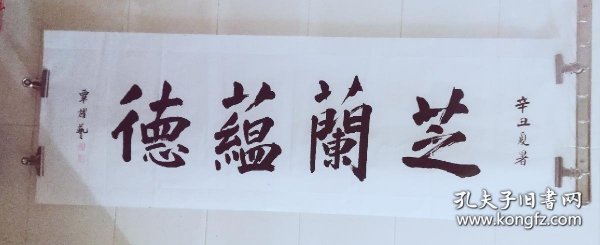 辛丑夏暑
芝蘭蘊德
覃耀藝
孔夫子旧书网
www.kongfz.com